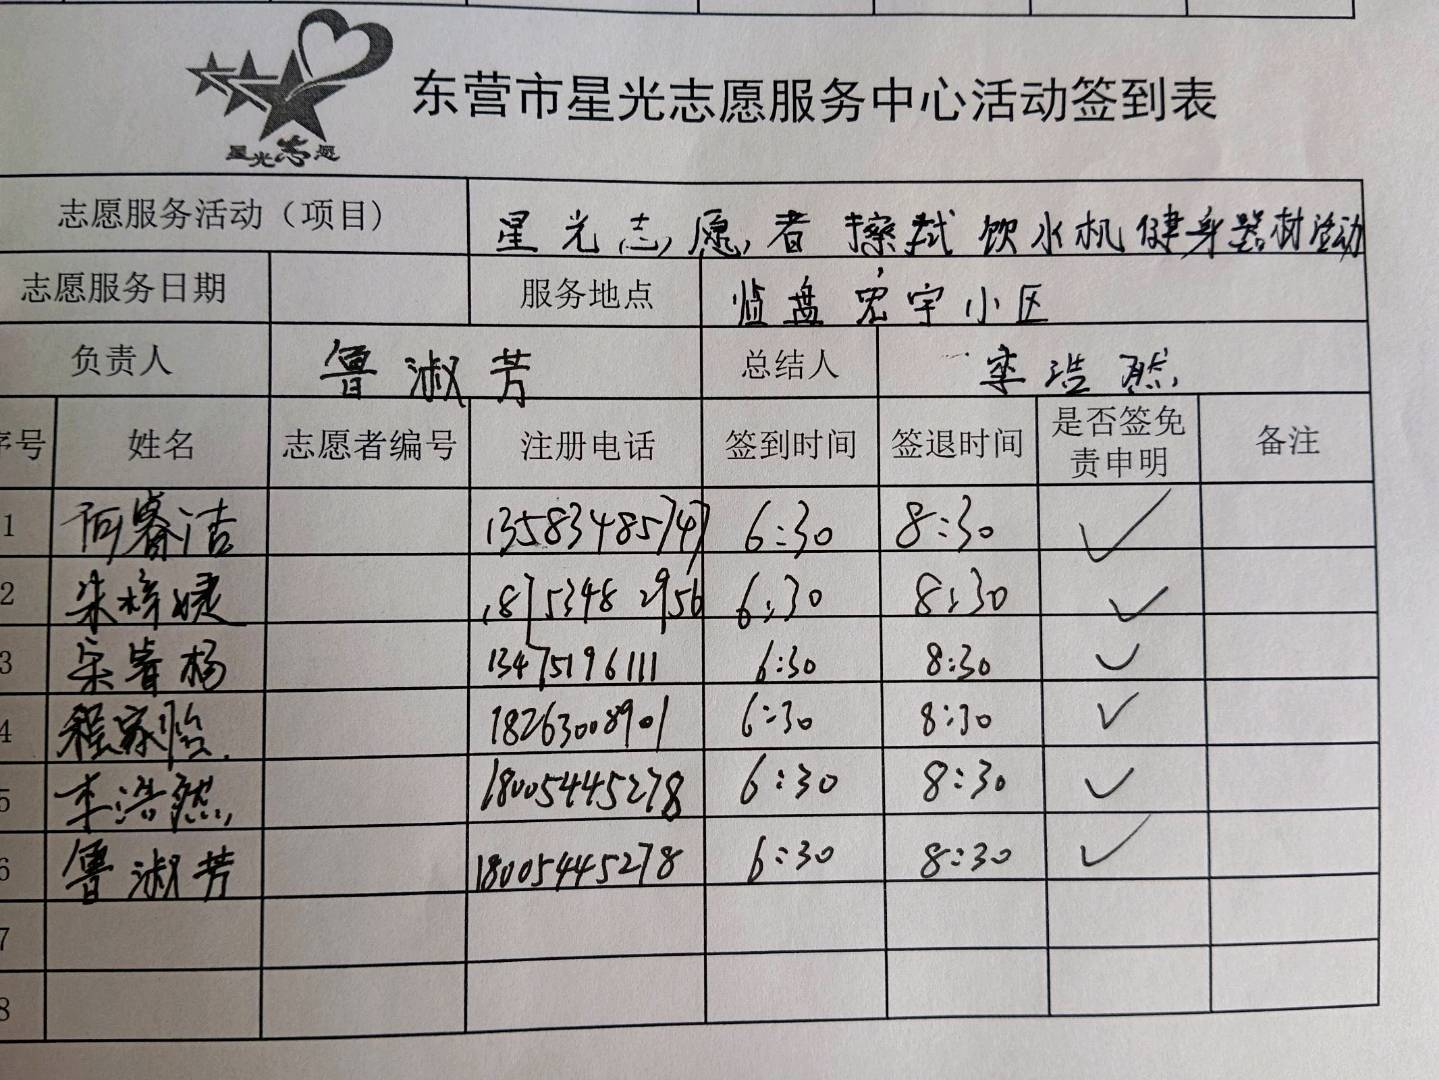 星光志愿
东营市星光志愿服务中心活动签到表
志愿服务活动（项目） 星光志愿者擦拭饮水机健身器材活动
志愿服务日期 服务地点 监盘宏宇小区
负责人 鲁淑芳 总结人 李浩然
序号 姓名 志愿者编号 注册电话 签到时间 签退时间 是否签免责申明 备注
1 睿洁 13583485747 6:30 8:30 ✓
2 朱梓婕 18753482956 6:30 8:30 ✓
3 宋睿杨 13475196111 6:30 8:30 ✓
4 程家怡 18263008901 6:30 8:30 ✓
5 李浩然 18005445278 6:30 8:30 ✓
6 鲁淑芳 18005445278 6:30 8:30 ✓
7
8